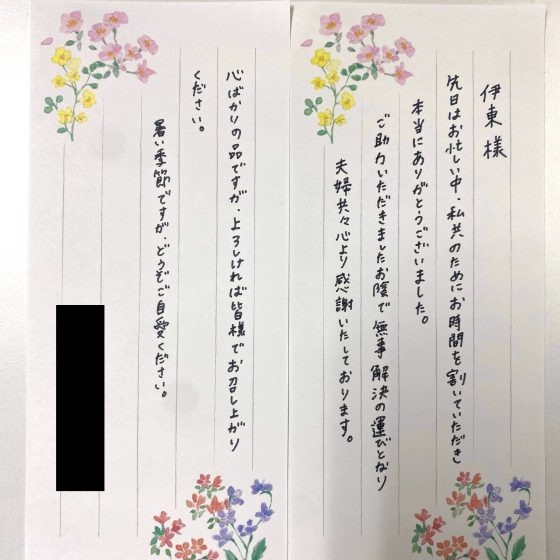 伊東様
先日はお忙しい中、私共のためにお時間を割いていただき
本当にありがとうございました。
ご助力いただきましたお陰で無事解決の運びとなり
夫婦共々心より感謝いたしております。
心ばかりの品ですが、よろしければ皆様でお召し上がり
ください。
暑い季節ですが、どうぞご自愛ください。